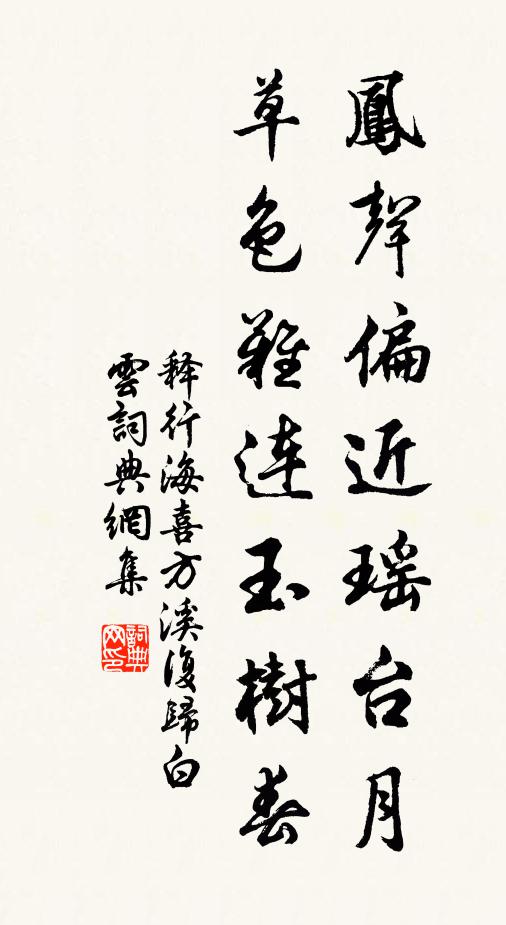 鳳聲偏近瑶台月
草色難連玉樹春
释行海喜方溪復歸白
雲詞典網集
詞典
网印